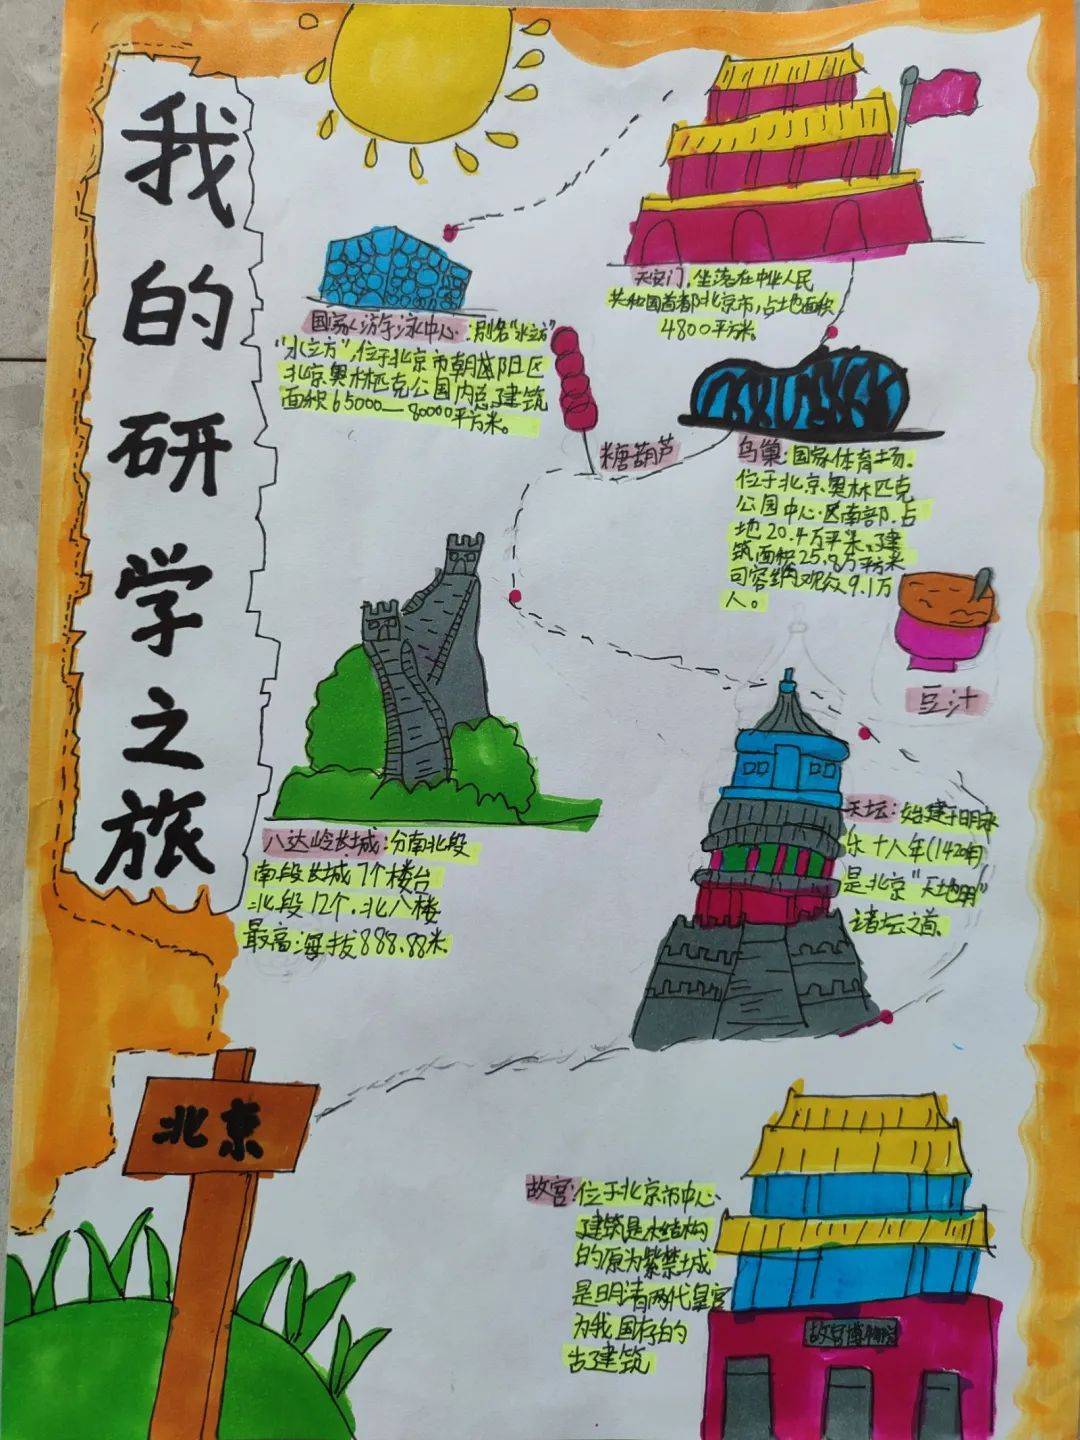 我的研学之旅
天安门,坐落在中华人民
共和国首都北京市,占地面积
4800平方米。
国家游泳中心:别名"水立方"
"水立方",位于北京市朝阳区
北京奥林匹克公园内总建筑
面积65000—80000平方米。
糖葫芦
鸟巢:国家体育场.
位于北京奥林匹克
公园中心区南部.占
地20.4万平米,建
筑面积25.8万平方米
可容纳观众9.1万
人。
豆汁
八达岭长城:分南北段
南段长城7个楼台
北段12个.北八楼
最高:海拔888.88米
天坛:始建于明永
乐十八年(1420年)
是北京"天地
诸坛之首.
北京
故宫:位于北京市中心
建筑是木结构
的原为紫禁城
是明清两代皇宫
为我国存的
古建筑
故宫博物院